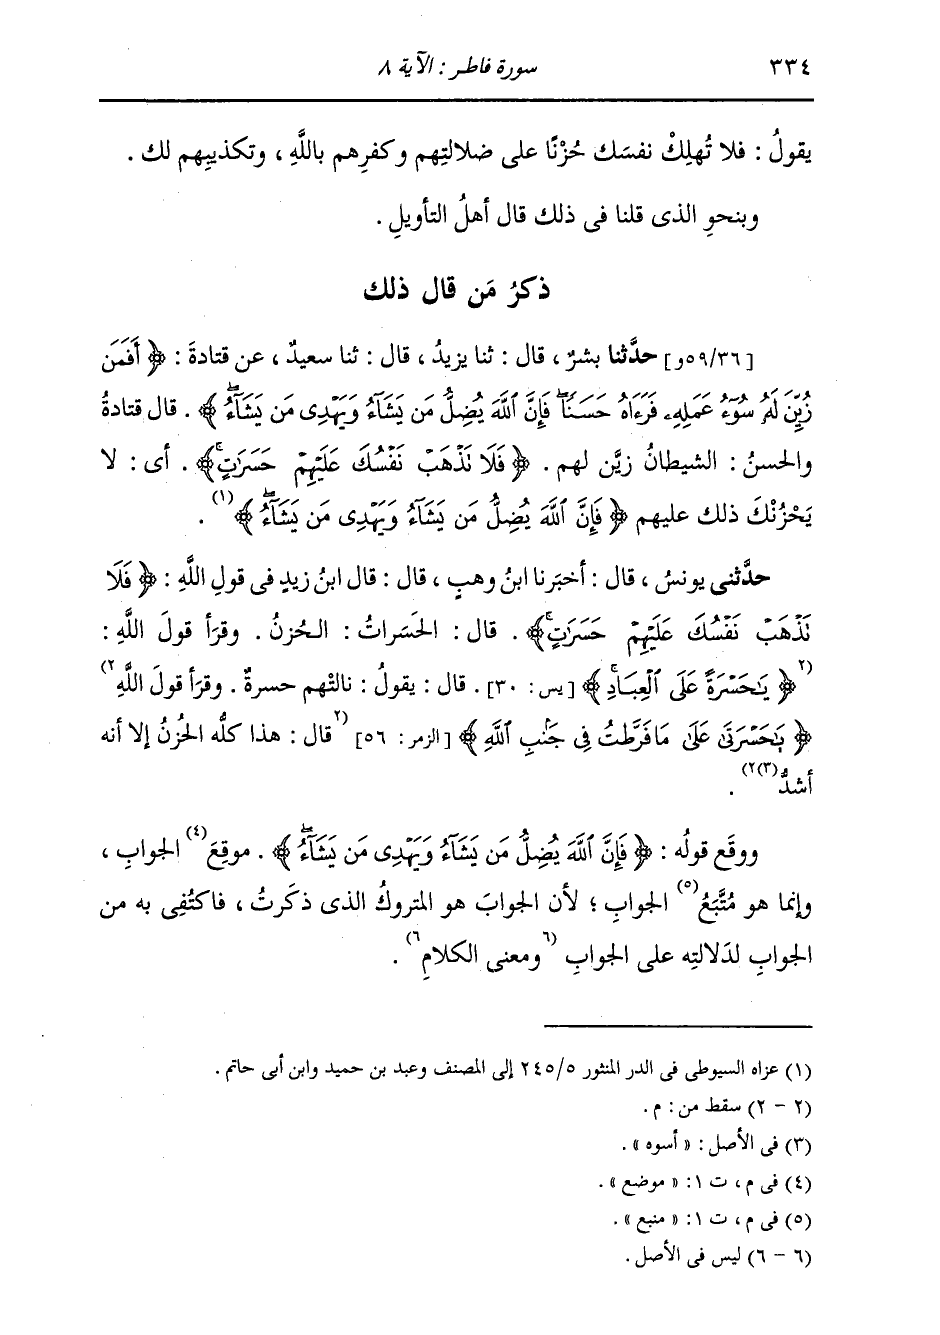 ٣٣٤
سورة فاطر : الآية ٨
يقولُ : فلا تُهلِكْ نفسَك حُزْنًا على ضلالتِهم وكفرِهم باللَّهِ ، وتكذيبِهم لك .
وبنحوِ الذى قلنا فى ذلك قال أهلُ التأويلِ .
ذكرُ مَن قال ذلك
[٥٩/٣٦و] حدَّثنا بشرٌ ، قال : ثنا يزيدُ ، قال : ثنا سعيدٌ ، عن قتادةَ : ﴿ أَفَمَن
زُيِّنَ لَهُۥ سُوٓءُ عَمَلِهِۦ فَرَءَاهُ حَسَنًاۖ فَإِنَّ ٱللَّهَ يُضِلُّ مَن يَشَآءُ وَيَهْدِى مَن يَشَآءُۖ ﴾ . قال قتادةُ
والحسنُ : الشيطانُ زيَّن لهم . ﴿ فَلَا نَذْهَبْ نَفْسُكَ عَلَيْهِمْ حَسَرَٰتٍۚ ﴾ . أى : لا
يَحْزُنْكَ ذلك عليهم ﴿ فَإِنَّ ٱللَّهَ يُضِلُّ مَن يَشَآءُ وَيَهْدِى مَن يَشَآءُۖ ﴾(١) .
حدَّثنى يونسُ ، قال : أخبَرنا ابنُ وهبٍ ، قال : قال ابنُ زيدٍ فى قولِ اللَّهِ : ﴿ فَلَا
نَذْهَبْ نَفْسُكَ عَلَيْهِمْ حَسَرَٰتٍۚ ﴾ . قال : الحَسَراتُ : الحُزنُ . وقرَأ قولَ اللَّهِ :
(٢﴿ يَٰحَسْرَةً عَلَى ٱلْعِبَادِۚ ﴾ [يس: ٣٠] . قال : يقولُ : نالتْهم حسرةٌ . وقرَأ قولَ اللَّهِ٢)
﴿ بَٰحَسْرَتَىٰ عَلَىٰ مَا فَرَّطتُ فِى جَنۢبِ ٱللَّهِ ﴾ [الزمر: ٥٦] (٢قال : هذا كلُّه الحُزنُ إلا أنه
أشدُّ(٣)٢) .
ووقَع قولُه : ﴿ فَإِنَّ ٱللَّهَ يُضِلُّ مَن يَشَآءُ وَيَهْدِى مَن يَشَآءُۖ ﴾ . موقِعَ(٤) الجوابِ ،
وإنما هو مُتَّبَعُ(٥) الجوابِ ؛ لأن الجوابَ هو المتروكُ الذى ذكَرتُ ، فاكتُفِى به من
الجوابِ لدَلالتِه على الجوابِ (٦ومعنى الكلامِ٦) .
(١) عزاه السيوطى فى الدر المنثور ٢٤٥/٥ إلى المصنف وعبد بن حميد وابن أبى حاتم .
(٢ - ٢) سقط من : م .
(٣) فى الأصل : « أسوه » .
(٤) فى م ، ت ١: « موضع » .
(٥) فى م ، ت ١: « منبع » .
(٦ - ٦) ليس فى الأصل .